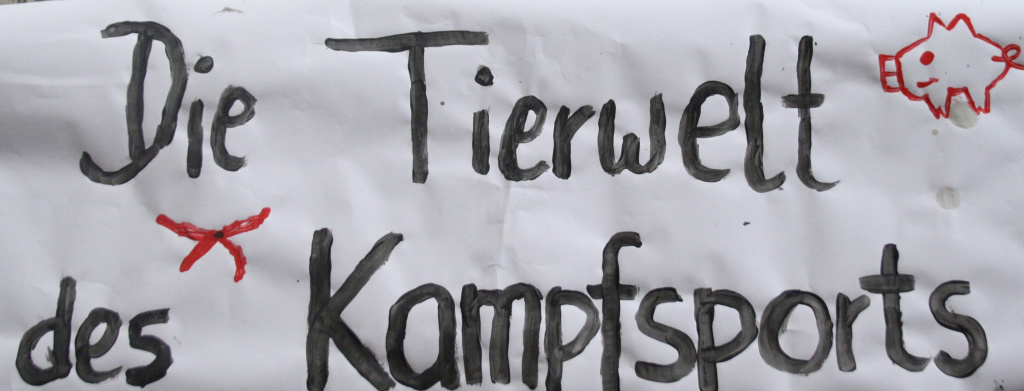 Die Tierwelt
des Kampfsports